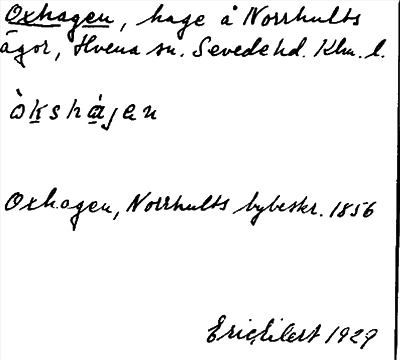 Oxhagen, hage å Norrhults
ägor, Hvena sn. Sevede hd. Klm. l.
òkshájen
Oxhagen, Norrhults bybeskr. 1856
Eric Eilert 1929